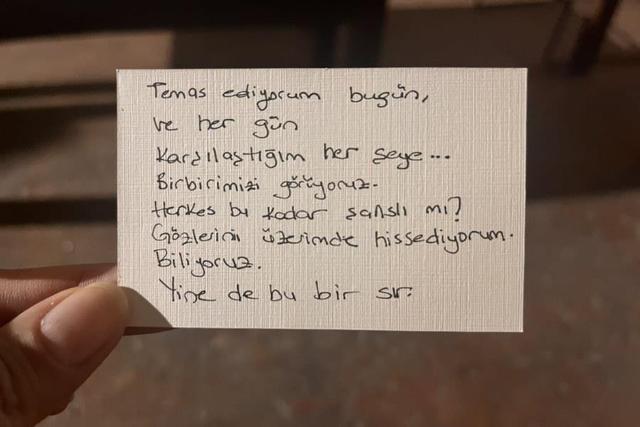 Temas ediyorum bugün,
ve her gün
Karşılaştığım her şeye...
Birbirimizi görüyoruz.
Herkes bu kadar şanslı mı?
Gözlerini üzerimde hissediyorum.
Biliyoruz.
Yine de bu bir sır.